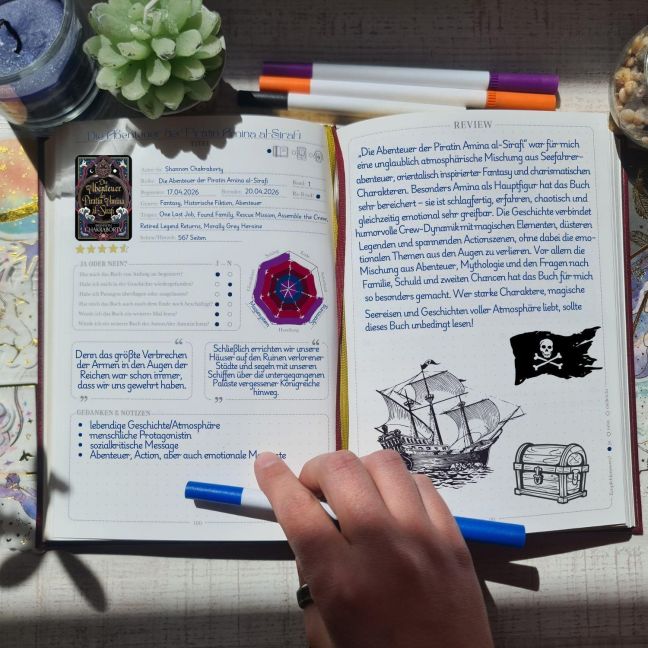 Die Abenteuer der Piratin Amina al-Sirafi
TITEL
Die
Abenteuer
der
Piratin Amina
al-Sirafi
CHAKRABORTY
Autor/in: Shannon Chakraborty
Reihe: Die Abenteuer der Piratin Amina al-Sirafi Band: 1
Begonnen: 17.04.2026 Beendet: 20.04.2026 Re-Read:
Genres: Fantasy, Historische Fiktion, Abenteuer
Tropes: One Last Job, Found Family, Rescue Mission, Assemble the Crew,
Retired Legend Returns, Morally Grey Heroine
Seiten/Hörzeit: 567 Seiten
JA ODER NEIN? J - N
Hat mich das Buch von Anfang an begeistert?
Habe ich mich in der Geschichte wiedergefunden?
Habe ich Passagen überflogen oder ausgelassen?
Hat mich das Buch auch nach dem Ende noch beschäftigt?
Würde ich das Buch ein weiteres Mal lesen?
Würde ich ein weiteres Buch des Autors/der Autorin lesen?
Spannung
Handlung
Denn das größte Verbrechen
der Armen in den Augen der
Reichen war schon immer,
dass wir uns gewehrt haben.
Schließlich errichten wir unsere
Häuser auf den Ruinen verlorener
Städte und segeln mit unseren
Schiffen über die untergegangenen
Paläste vergessener Königreiche
hinweg.
GEDANKEN & NOTIZEN
• lebendige Geschichte/Atmosphäre
• menschliche Protagonistin
• sozialkritische Message
• Abenteuer, Action, aber auch emotionale
100
REVIEW
„Die Abenteuer der Piratin Amina al-Sirafi“ war für mich
eine unglaublich atmosphärische Mischung aus Seefahrer-
abenteuer, orientalisch inspirierter Fantasy und charismatischen
Charakteren. Besonders Amina als Hauptfigur hat das Buch
sehr bereichert – sie ist schlagfertig, erfahren, chaotisch und
gleichzeitig emotional sehr greifbar. Die Geschichte verbindet
humorvolle Crew-Dynamik mit magischen Elementen, düsteren
Legenden und spannenden Actionszenen, ohne dabei die emo-
tionalen Themen aus den Augen zu verlieren. Vor allem die
Mischung aus Abenteuer, Mythologie und den Fragen nach
Familie, Schuld und zweiten Chancen hat das Buch für mich
so besonders gemacht. Wer starke Charaktere, magische
Seereisen und Geschichten voller Atmosphäre liebt, sollte
dieses Buch unbedingt lesen!